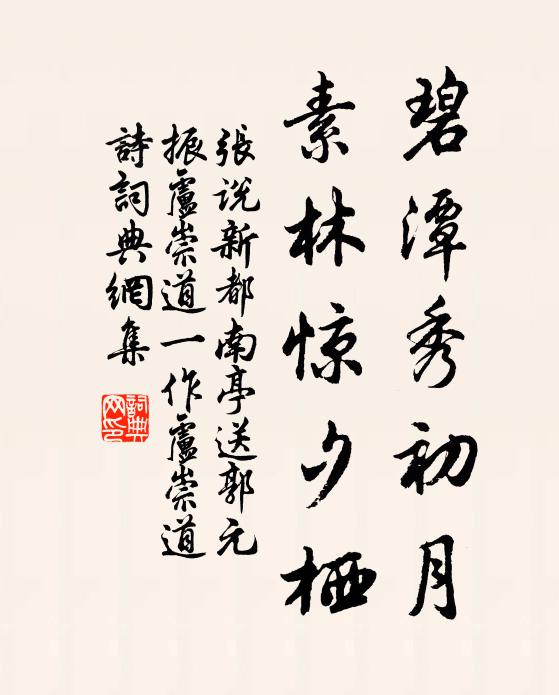 碧潭秀初月
素林惊夕栖
張说新都南亭送郭元
振盧崇道一作盧崇道
詩詞典網集
詞典
网印